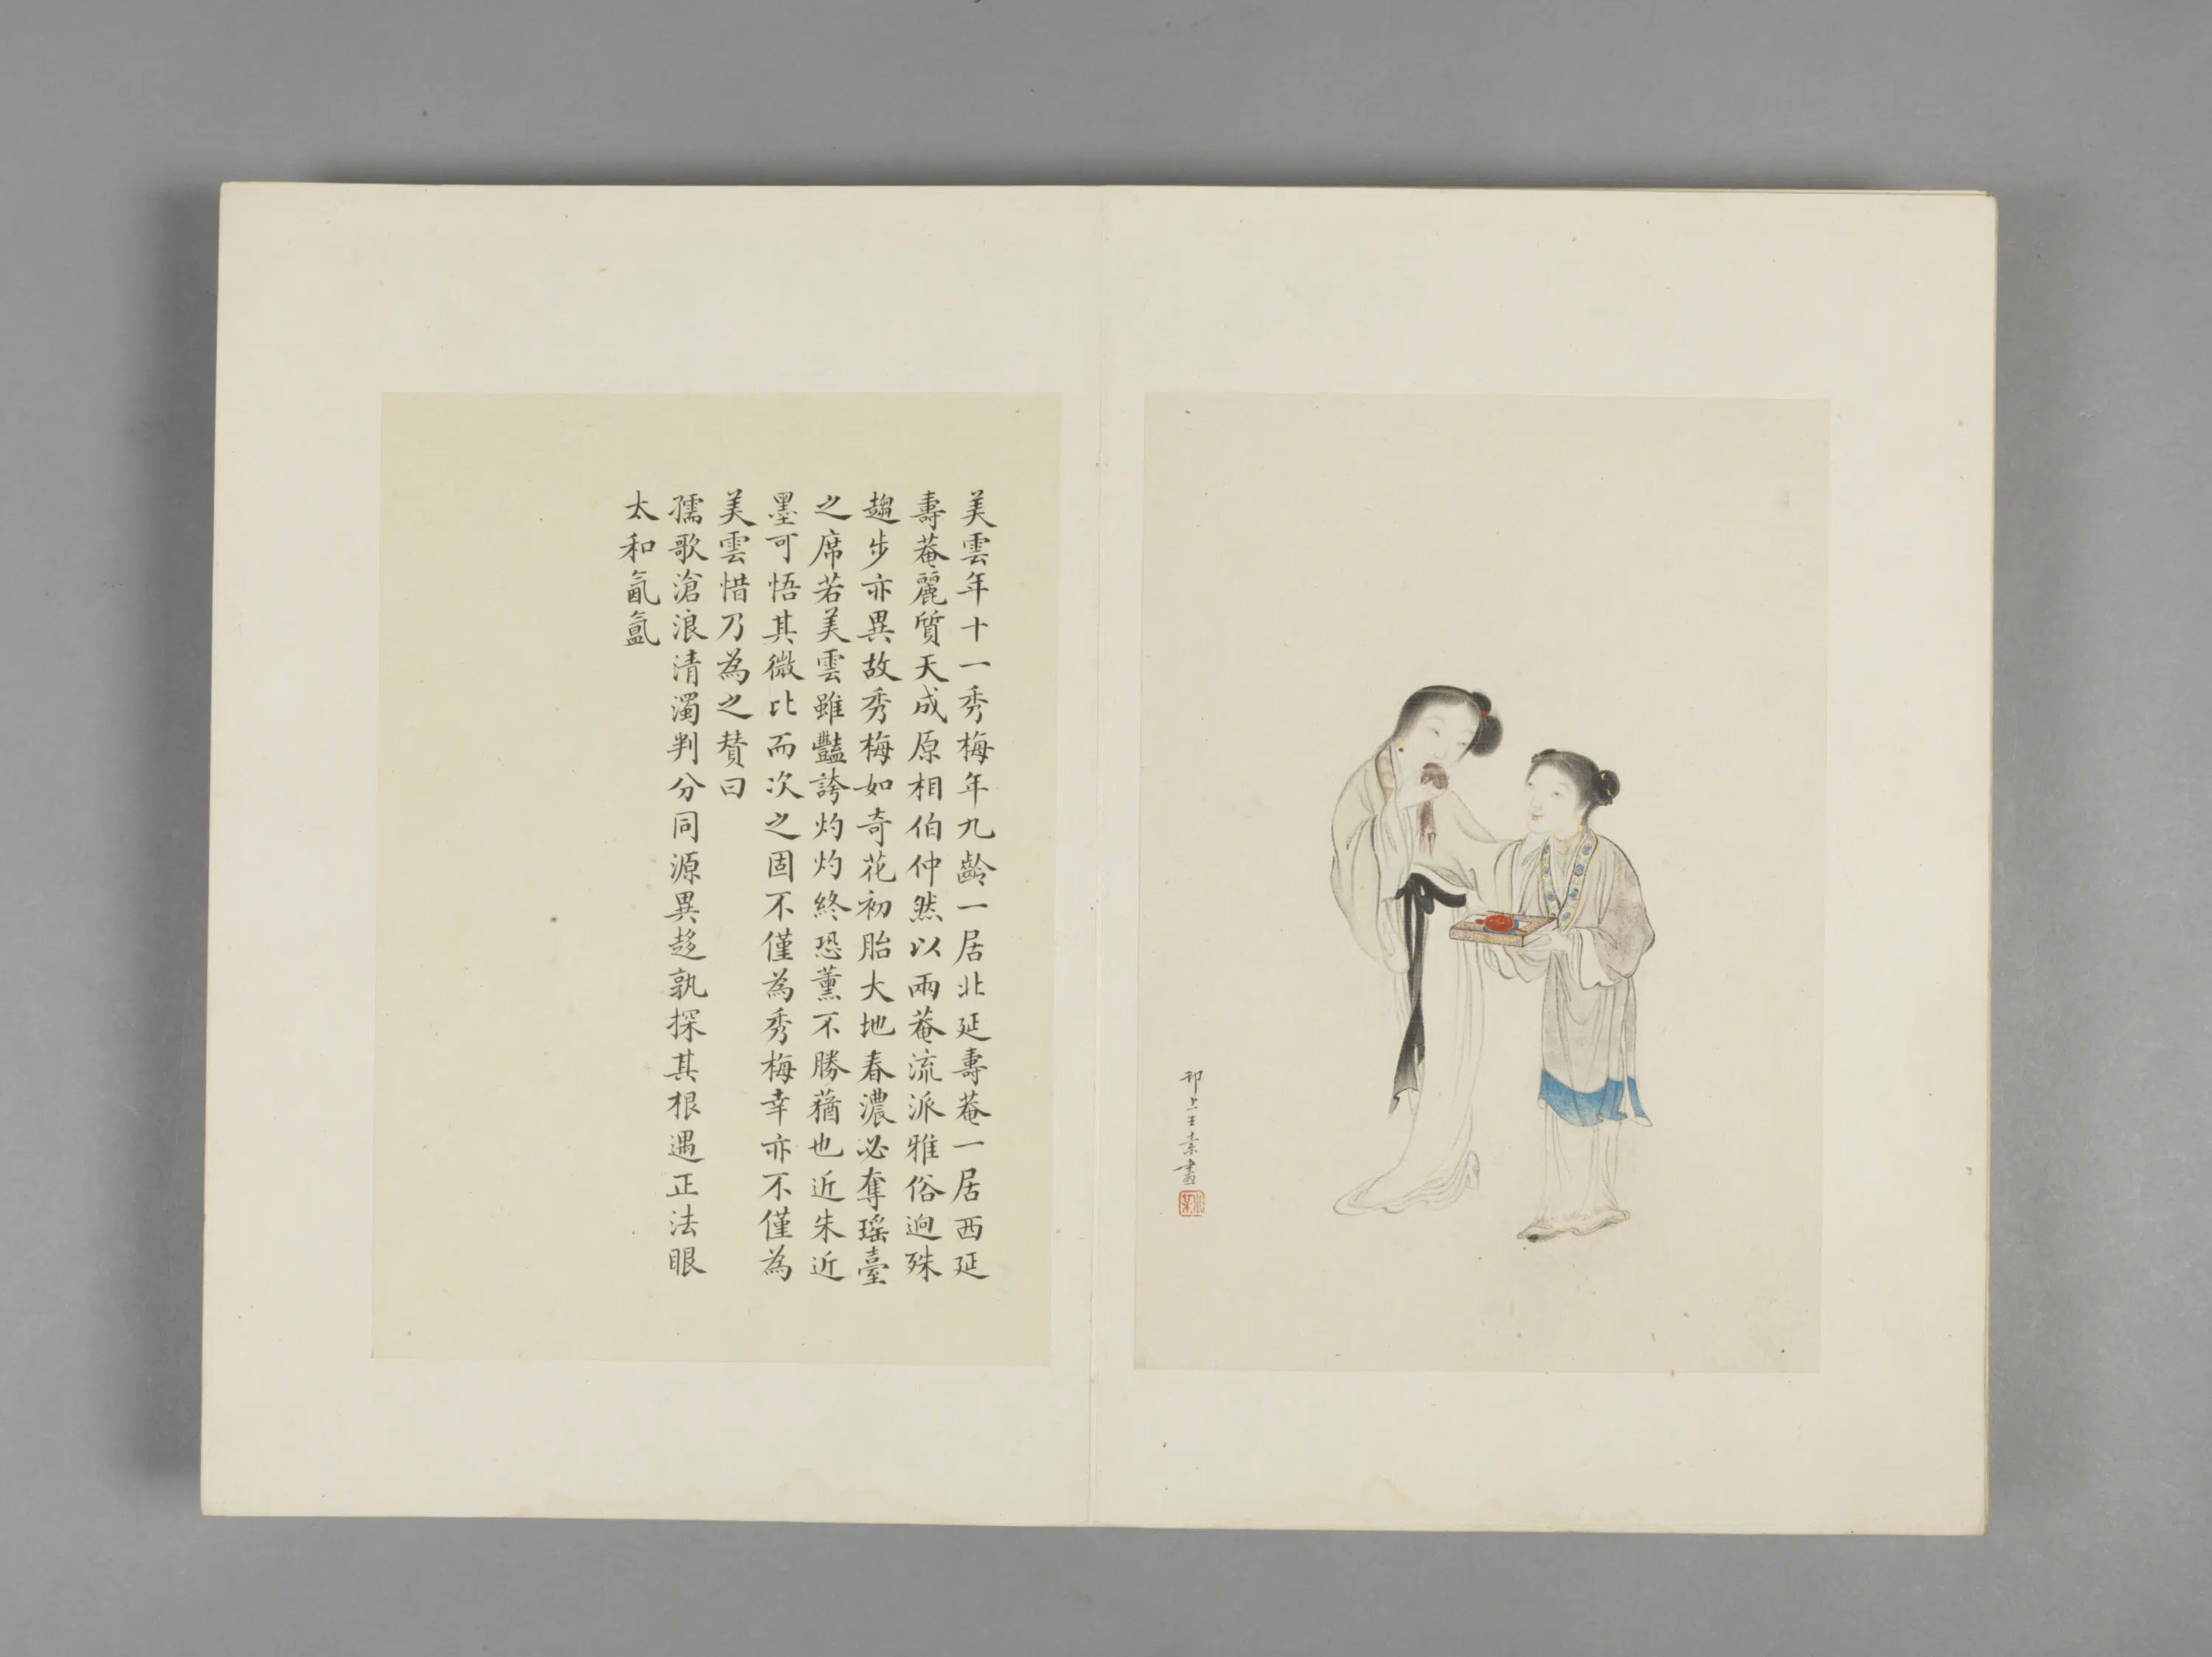 美雲年十一秀梅年九齡一居北延壽菴一居西延
壽菴麗質天成原相伯仲然以兩菴流派雅俗迥殊
趨步亦異故秀梅如奇花初胎大地春濃必奪瑤臺
之席若美雲雖豔誇灼灼終恐薰不勝蕕也近朱近
墨可悟其微比而次之固不僅為秀梅幸亦不僅為
美雲惜乃為之贊曰
孺歌滄浪清濁判分同源異趍孰探其根遇正法眼
太和氤氳
邗上王素畫